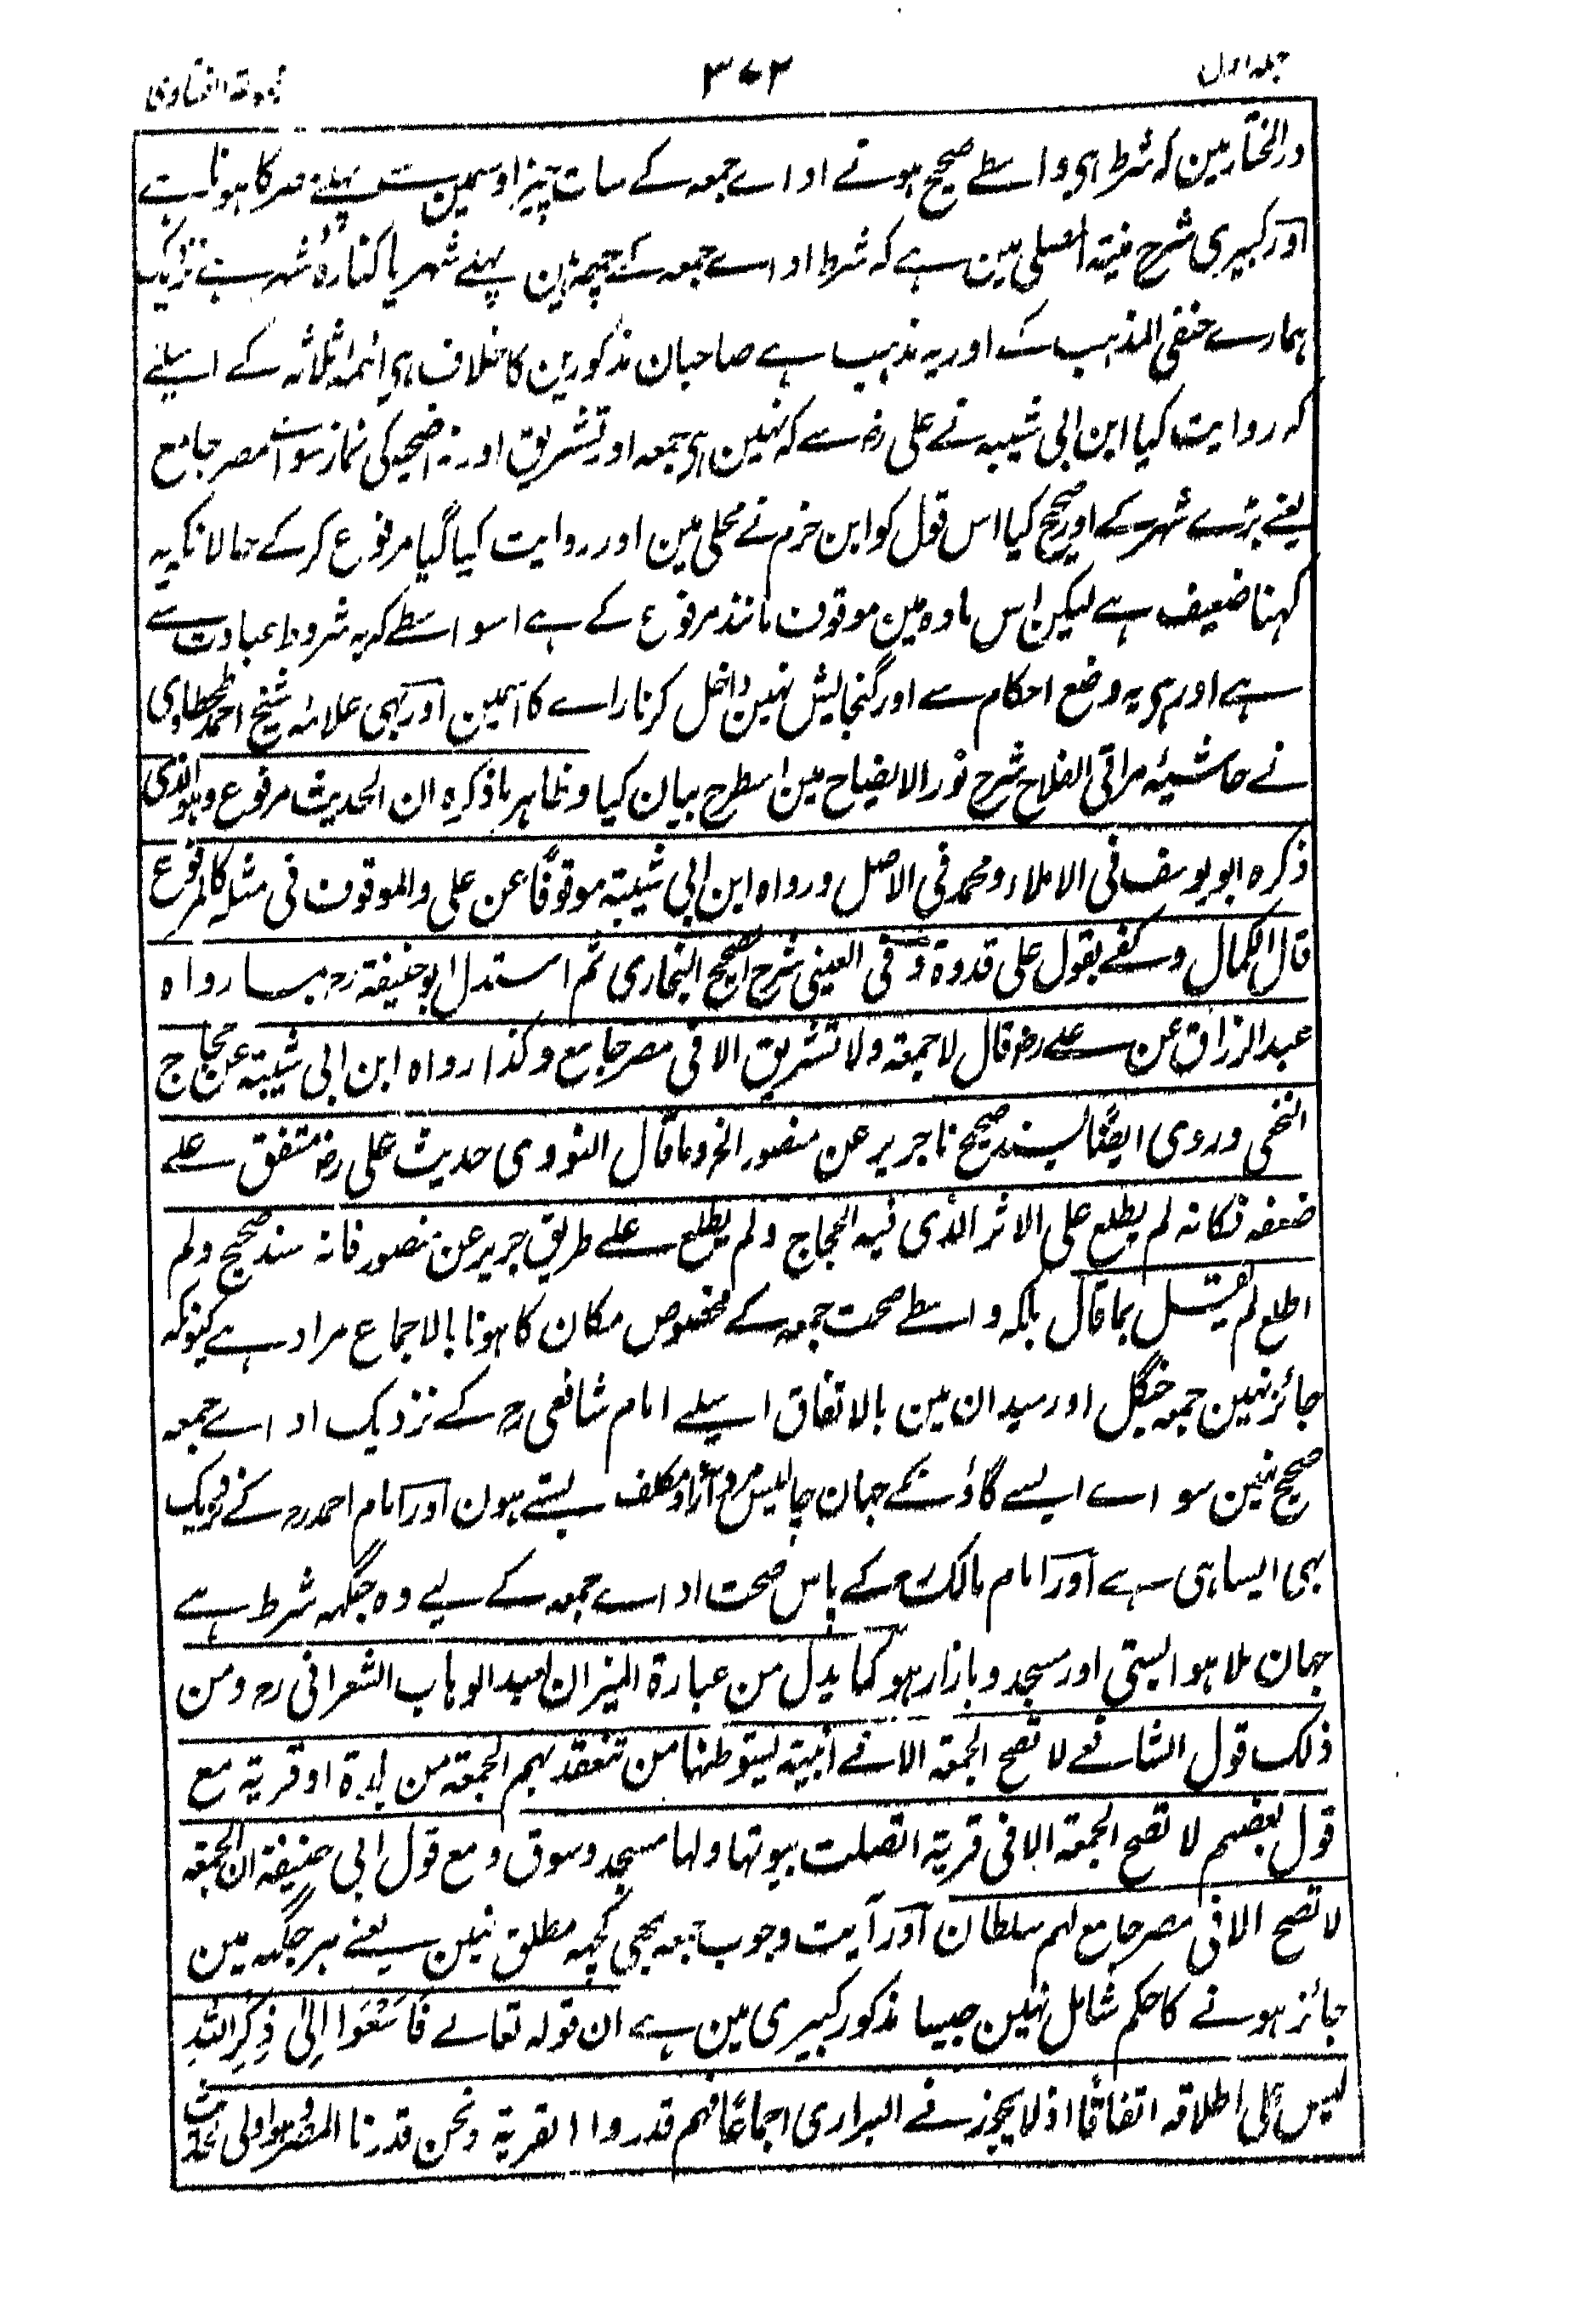 جلد اول
۳۷۲
مجموعۃ الفتاوی
درالمختار مین کہ شرط ہی واسطے صحیح ہونے اداے جمعہ کے سات چیز اوسمین سے پہلے مصر کا ہونا ہے
اور کبیری شرح منیۃ المصلی مین ہے کہ شرط اداے جمعہ کے چھہ ہین پہلے شہر یا کنارہ شہر ہے نزدیک
ہمارے حنفی المذہب کے اور یہ مذہب ہے صاحبان مذکورین کا خلاف ہی ائمہ ثلاثہ کے اسلیے
کہ روایت کیا ابن ابی شیبہ نے علی رض سے کہ نہین ہی جمعہ اور تشریق اور نہ اضحیہ کی نماز سواے مصر جامع
یعنے بڑے شہر کے اور صحیح کیا اس قول کو ابن حزم نے محلی مین اور روایت کیا گیا مرفوع کر کے حالانکہ یہ
کہنا ضعیف ہے لیکن اس مادہ مین موقوف مانند مرفوع کے ہے اسواسطے کہ یہ شروط عبادت سے
ہے اور ہی یہ وضع احکام سے اور گنجایش نہین داخل کرنا راے کا اسمین اور بہی علامہ شیخ احمد طحطاوی
نے حاشیئہ مراقی الفلاح شرح نور الایضاح مین اسطرح بیان کیا وظاہر ما ذکرہ ان الحدیث مرفوع وہو الذی
ذکرہ ابو یوسف فی الاملاء ومحمد فی الاصل ورواہ ابن ابی شیبۃ موقوفًا عن علی والموقوف فی مثلہ کالمرفوع
قال الکمال وکفے بقول علی قدوۃ وفی العینی شرح الصحیح البخاری ثم استدل ابو حنیفۃ رح بما رواہ
عبد الرزاق عن علے رض قال لا جمعۃ ولا تشریق الا فی مصر جامع وکذا رواہ ابن ابی شیبۃ عن حجاج
النخعی وروی ایضًا بسند صحیح نا جریر عن منصور الخ وما قال النووی حدیث علی رض متفق علے
ضعفہ فکانہ لم یطلع علی الاثر الذی فیہ الحجاج ولم یطلع علے طریق جریر عن منصور فانہ سند صحیح ولم
اطلع لم یقل بما قال بلکہ واسطے صحت جمعہ کے مخصوص مکان کا ہونا بالاجماع مراد ہے کیونکہ
جائز نہین جمعہ جنگل اور میدان مین بالاتفاق اسیلے امام شافعی رح کے نزدیک اداے جمعہ
صحیح نہین سواے ایسے گاؤنکے جہان چالیس مرد آزاد مکلف بستے ہون اور امام احمد رح کے نزدیک
بہی ایسا ہی ہے اور امام مالک رح کے پاس صحت اداے جمعہ کے لیے وہ جگہہ شرط ہے
جہان ملا ہوا بستی اور مسجد و بازار ہو کما یدل من عبارۃ المیزان لعبد الوہاب الشعرانی رح ومن
ذلک قول الشافعے لا تصح الجمعۃ الا فے ابنیۃ یستوطنہا من تنعقد بہم الجمعۃ من بلدۃ او قریۃ مع
قول بعضہم لا تصح الجمعۃ الا فی قریۃ اتصلت بیوتہا ولہا مسجد وسوق ومع قول ابی حنیفۃ ان الجمعۃ
لا تصح الا فی مصر جامع لہم سلطان اور آیت وجوب جمعہ بھی کچہہ مطلق نہین یعنے ہر جگہہ مین
جائز ہونے کا حکم شامل نہین جیسا مذکور کبیری مین ہے ان قولہ تعالے فَاسْعَوْا اِلٰی ذِکْرِ اللّٰہِ
لیس علی اطلاقہ اتفاقًا اذ لا یجوز فے البراری اجماعًا فہم قدروا القریۃ ونحن قدرنا المصر وہو اولی